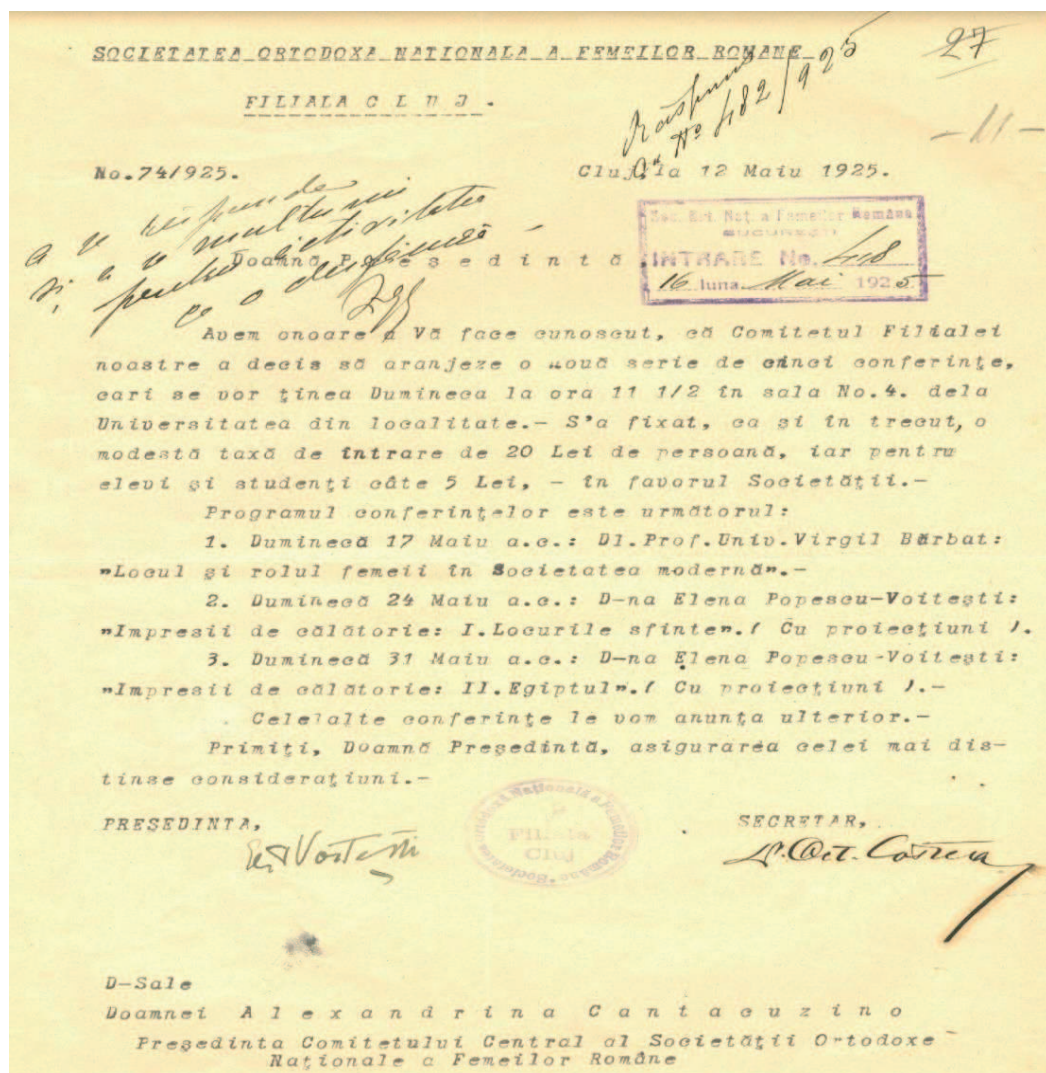 SOCIETATEA ORTODOXA NATIONALA A FEMEILOR ROMANE
27
FILIALA C L U J .
Răspuns
No 482/925
-11-
No.74/925.
Cluj, la 12 Maiu 1925.
a se răspunde
și a se mulțumi
pentru activitatea
ce o desfășoară
Soc. Ort. Naț. a Femeilor Române
BUCUREȘTI
INTRARE No. 418
16 luna Mai 1925
Doamnă P r e ș e d i n t ă
Avem onoare a Vă face cunoscut, că Comitetul Filialei
noastre a decis să aranjeze o nouă serie de cinci conferințe,
cari se vor ținea Dumineca la ora 11 1/2 în sala No.4. dela
Universitatea din localitate.- S'a fixat, ca și în trecut, o
modestă taxă de întrare de 20 Lei de persoană, iar pentru
elevi și studenți câte 5 Lei, - în favorul Societății.-
Programul conferințelor este următorul:
1. Duminecă 17 Maiu a.c.: Dl.Prof.Univ.Virgil Bărbat:
"Locul și rolul femeii în Societatea modernă".-
2. Duminecă 24 Maiu a.c.: D-na Elena Popescu-Voitești:
"Impresii de călătorie: I.Locurile sfinte".( Cu proiecțiuni ).
3. Duminecă 31 Maiu a.c.: D-na Elena Popescu-Voitești:
"Impresii de călătorie: II.Egiptul".( Cu proiecțiuni ).-
Celelalte conferințe le vom anunța ulterior.-
Primiți, Doamnă Președintă, asigurarea celei mai dis-
tinse considerațiuni.-
PRESEDINTA,
SECRETAR,
Societatea Ortodoxă Națională a Femeilor Române
Filiala
Cluj
D-Sale
Doamnei A l e x a n d r i n a C a n t a c u z i n o
Președinta Comitetului Central al Societății Ortodoxe
Naționale a Femeilor Române